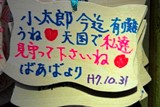 小太郎今迄有難
うね❤天国で私達
見守って下さいね
ばあばより
H7.10.31